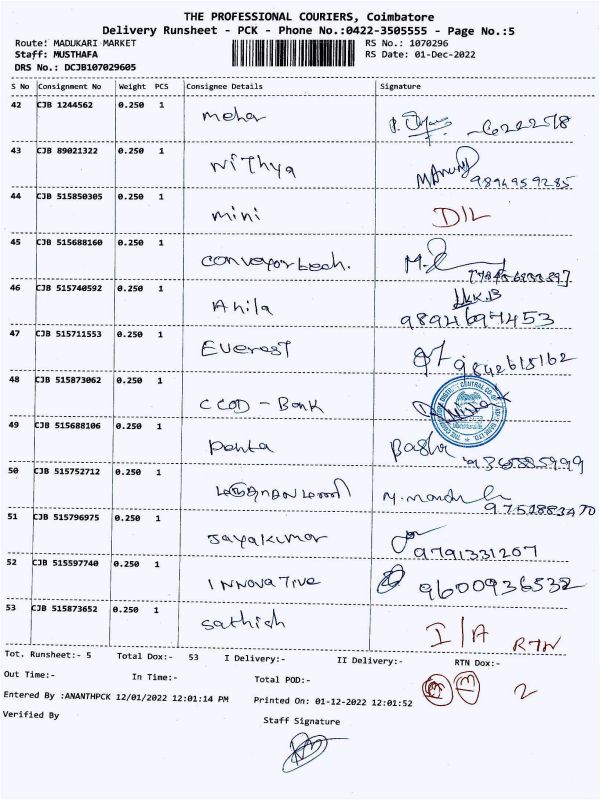 THE PROFESSIONAL COURIERS, Coimbatore
Delivery Runsheet - PCK - Phone No.:0422-3505555 - Page No.:5
Route: MADUKARI MARKET RS No.: 1070296
Staff: MUSTHAFA RS Date: 01-Dec-2022
DRS No.: DCJB107029605
S No Consignment No Weight PCS Consignee Details Signature
42 CJB 1244562 0.250 1 Meher 6222578
43 CJB 89021322 0.250 1 Nithya 9894959285
44 CJB 515850305 0.250 1 mini D/L
45 CJB 515688160 0.250 1 conveyor tech.
46 CJB 515740592 0.250 1 Ahila 9894697453
47 CJB 515711553 0.250 1 Everest 9842615162
48 CJB 515873062 0.250 1 CCOD - Bank
49 CJB 515688106 0.250 1 Penta 9365885999
50 CJB 515752712 0.250 1 9751883470
51 CJB 515796975 0.250 1 Jayakumar 9791331207
52 CJB 515597740 0.250 1 INNOVATIVE 9600936532
53 CJB 515873652 0.250 1 Sathish I/A RTN
Tot. Runsheet:- 5 Total Dox:- 53 I Delivery:- II Delivery:- RTN Dox:-
Out Time:- In Time:- Total POD:- 2
Entered By :ANANTHPCK 12/01/2022 12:01:14 PM Printed On: 01-12-2022 12:01:52
Verified By Staff Signature